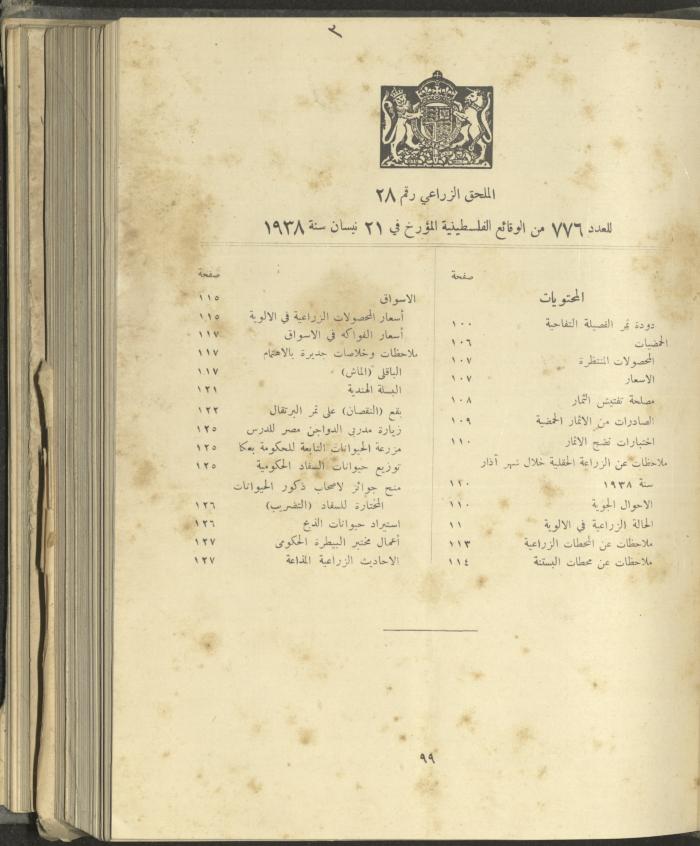 ٣
الملحق الزراعي رقم ٢٨
للعدد ٧٧٦ من الوقائع الفلسطينية المؤرخ في ٢١ نيسان سنة ١٩٣٨
صفحة
المحتويات
دودة ثمر الفصيلة التفاحية ١٠٠
الحمضيات ١٠٦
المحصولات المنتظرة ١٠٧
الاسعار ١٠٧
مصلحة تفتيش الثمار ١٠٨
الصادرات من الاثمار الحمضية ١٠٩
اختبارات تضج الاثمار ١١٠
ملاحظات عن الزراعة الحقلية خلال شهر آذار
سنة ١٩٣٨ ١٢٠
الاحوال الجوية ١١٠
الحالة الزراعية في الالوية ١١
ملاحظات عن المحطات الزراعية ١١٣
ملاحظات عن محطات البستنة ١١٤
صفحة
الاسواق ١١٥
أسعار المحصولات الزراعية في الالوية ١١٥
أسعار الفواكه في الاسواق ١١٧
ملاحظات وخلاصات جديرة بالاهتمام ١١٧
الباقلى (الماش) ١١٧
البسلة الهندية ١٢١
بقع (النقصان) على ثمر البرتقال ١٢٢
زيارة مدربي الدواجن مصر للدرس ١٢٥
مزرعة الحيوانات التابعة للحكومة بعكا ١٢٥
توزيع حيوانات السفاد الحكومية ١٢٥
منح جوائز لاصحاب ذكور الحيوانات
المختارة للسفاد (التضريب) ١٢٦
استيراد حيوانات الذبح ١٢٦
أعمال مختبر البيطرة الحكومى ١٢٧
الاحاديث الزراعية المذاعة ١٢٧
٩٩